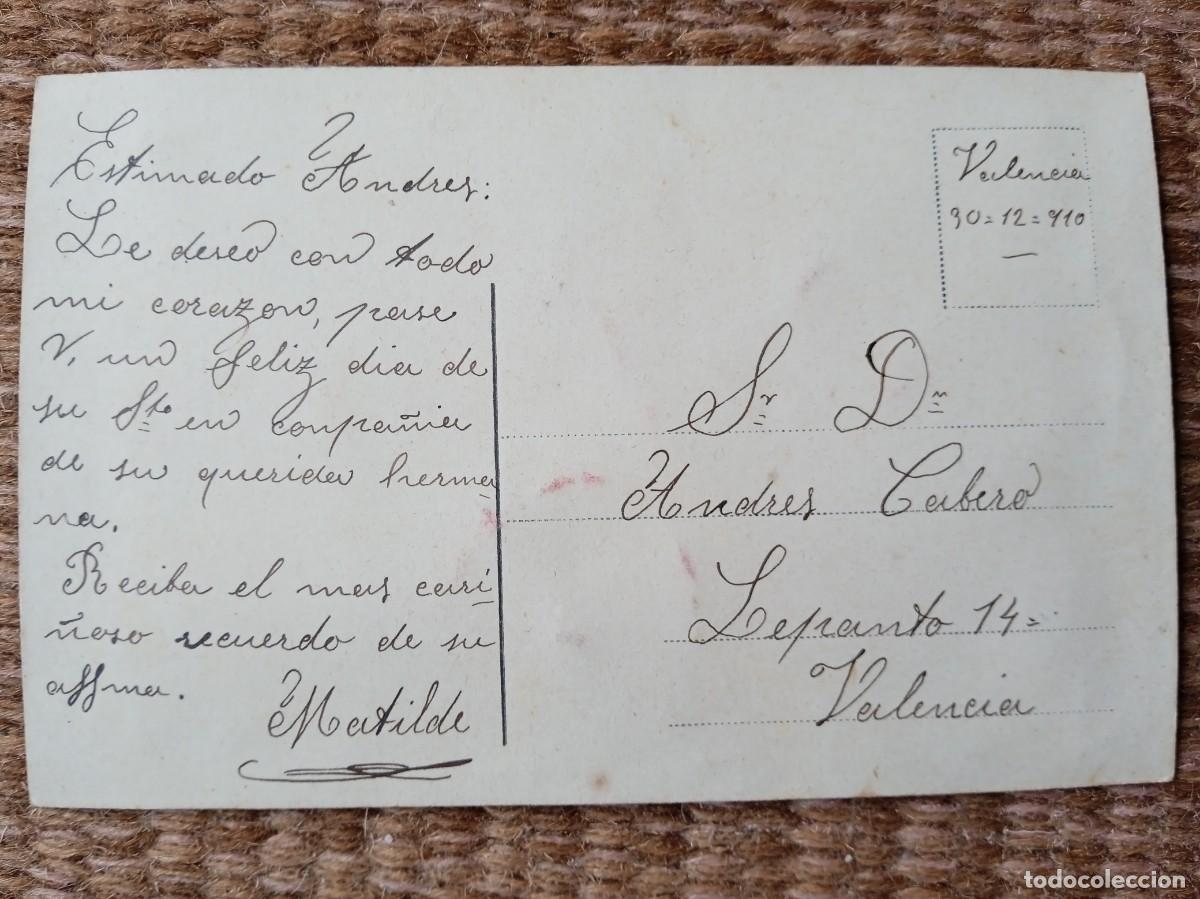 Estimado Andres:
Le deseo con todo
mi corazon, pase
V. un feliz dia de
su Sto en conpañia
de su querida herma-
na.
Reciba el mas cari-
ñoso recuerdo de su
affma.
Matilde
Valencia
30=12=910
Sr Dn
Andres Cabero
Lepanto 14=
Valencia
todocoleccion